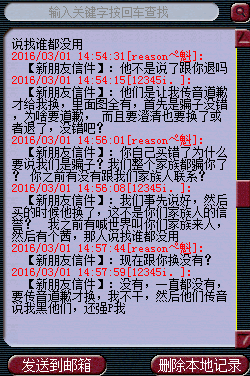 输入关键字按回车查找
说找谁都没用
2016/03/01 14:54:31[reason
【新朋友信件】：他不是说了跟你退吗
2016/03/01 14:54:15[12345i.. ]:
【新朋友信件】：他们是让我传音道歉
才给我换，里面图全有，首先是骗子没错
，为啥要道歉，而且要澄清也要换了或
者退了，没错吧?
2016/03/01 14:56:01[reason
【新朋友信件】：你自己买错了为什么
要说我们是骗子？我们整个家族都骗你了
？ 你之前有没有跟我们家族人联系？
2016/03/01 14:56:08[12345i.. ]:
【新朋友信件】：我们事先说好，然后
买的时候他换了，这不是你们家族人的信
誉？ 我之前有喊世界叫你们家族来人，
然后有个茜，那人说找谁都没用
2016/03/01 14:57:44[reason
【新朋友信件】：现在跟你换没有?
2016/03/01 14:57:59[12345i.. ]:
【新朋友信件】：没有，一直都没有，
要传音道歉才换，我不干，然后他们传音
说我黑他们，还强F我
发送到邮箱
删除本地记录